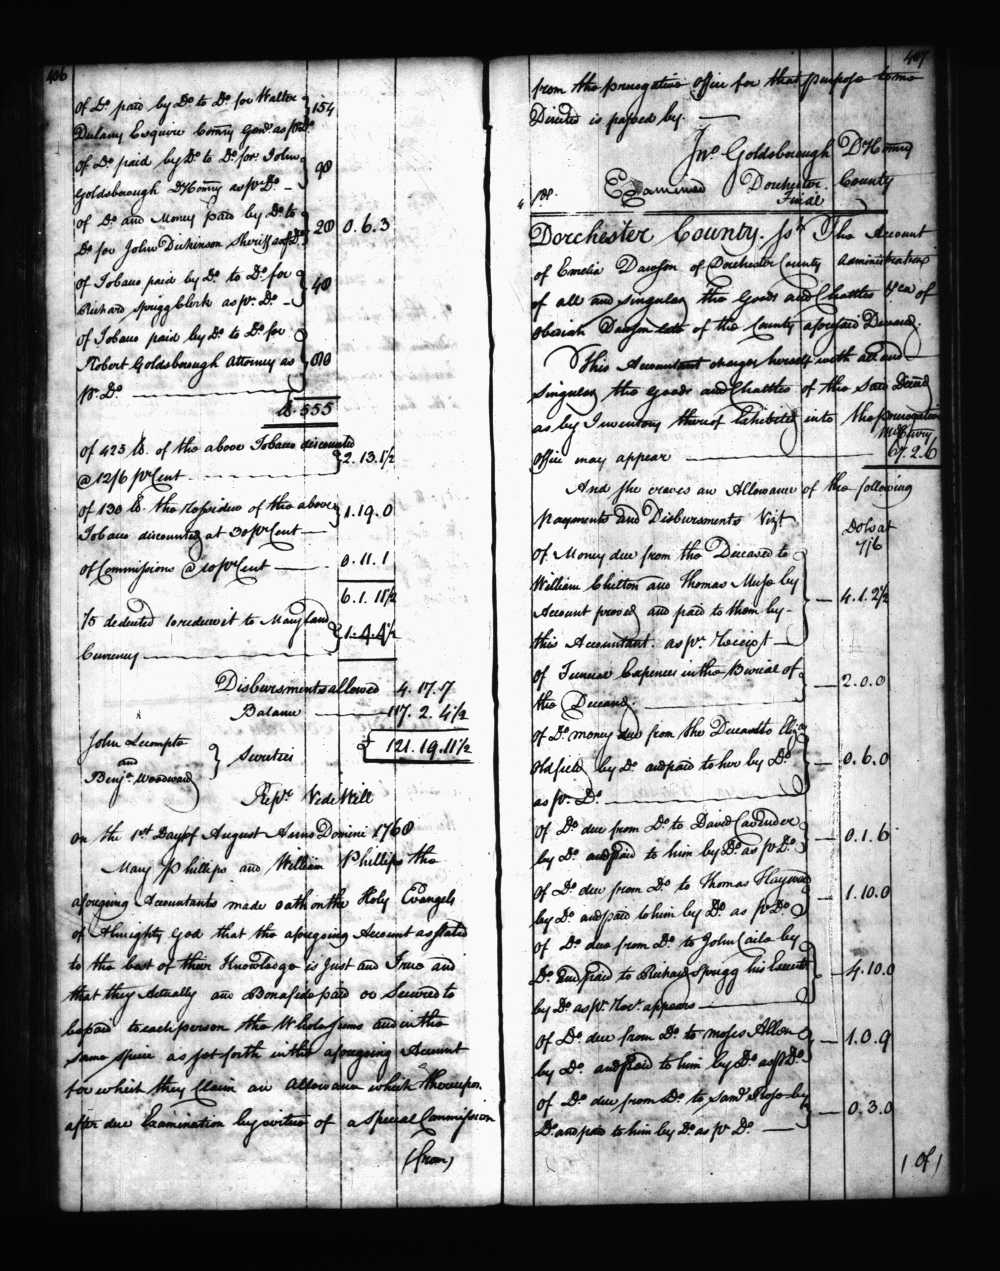 406
of Do. paid by Do. to Do. for Walter } 154
Dulany Esquire Comry Genl as pr. Do.
of Do. paid by Do. to Do. for John } 90
Goldsborough D Comry as pr. Do. —
of Do. and Money paid by Do. to } 20 0.6.3
Do. for John Dickinson Sheriff as pr. Do.
of Tobacco paid by Do. to Do. for } 40
Richard Sprigg Clerk as pr. Do. —
of Tobacco paid by Do. to Do. for
Robert Goldsborough Attorney as
pr. Do. —
lb. 555
of 425 lb. of the above Tobacco discounted
@ 12/6 pr Cent — } 2.13.1½
of 130 lb. the Residue of the above } 1.19.0
Tobacco discounted at 30 pr Cent —
of Commissions @ 10 pr Cent — 0.11.1
6.1.11½
1/5 deducted to reduce it to Maryland } 1.4.4½
Currency —
Disbursments allowed 4.17.7
Balance — 117.2.4½
£ 121.19.11½
John Lecompte
and } Securities
Benja. Woodward
Repr. Vide Will
On the 1st Day of August Anno Domini 1768
Mary Phillips and William Phillips the
aforegoing Accountants made oath on the Holy Evangels
of Almighty God that the aforegoing Account as stated
to the best of their Knowledge is Just and True and
that they Actually and Bonafide paid or Secured to
be paid to each person the Whole Sums and in the
same specie as set forth in the aforegoing Account
for which they Claim an Allowance which thereupon
after due Examination by virtue of a Special Commission
(from)
407
from the prerogative Office for that purpose to me
Directed is passed by. —
Jno. Goldsborough D Comry
Examined Dorchester County
Final
Dorchester County. Sst. The Account
of Emelia Dawson of Dorchester County Administratrix
of all and singular the Goods and Chattles &ca of
Obediah Dawson late of the County aforesaid Deceased.
This Accountant charges herself with all and
singular the Goods and Chattles of the said Deceased
as by Inventory thereof Exhibited into the prerogative
Office may appear — 67.2.6
And she craves an Allowance of the following
payments and Disbursments Vizt
Dols at
7/6
Of Money due from the Deceased to
William Chilton and Thomas Muse by
Account proved and paid to them by } — 4.1.2½
this Accountant as pr. Receipt —
of Funeral Expences in the Burial of } — 2.0.0
the Deceased. —
of Do. money due from the Deceased to Eliza.
Oldfield by Do. and paid to her by Do. } — 0.6.0
as pr. Do. —
of Do. due from Do. to David Cavender } — 0.1.6
by Do. and paid to him by Do. as pr Do.
of Do. due from Do. to Thomas Hayward } — 1.10.0
by Do. and paid to him by Do. as pr Do.
of Do. due from Do. to John Caile by
Do. and paid to Richard Sprigg his Executor } — 4.10.0
by Do. as pr. Rect. appears —
of Do. due from Do. to Moses Allen } — 1.0.9
by Do. and paid to him by Do. as pr Do.
of Do. due from Do. to Saml Rose by } — 0.3.0
Do. and paid to him by Do. as pr Do. —
(Of)